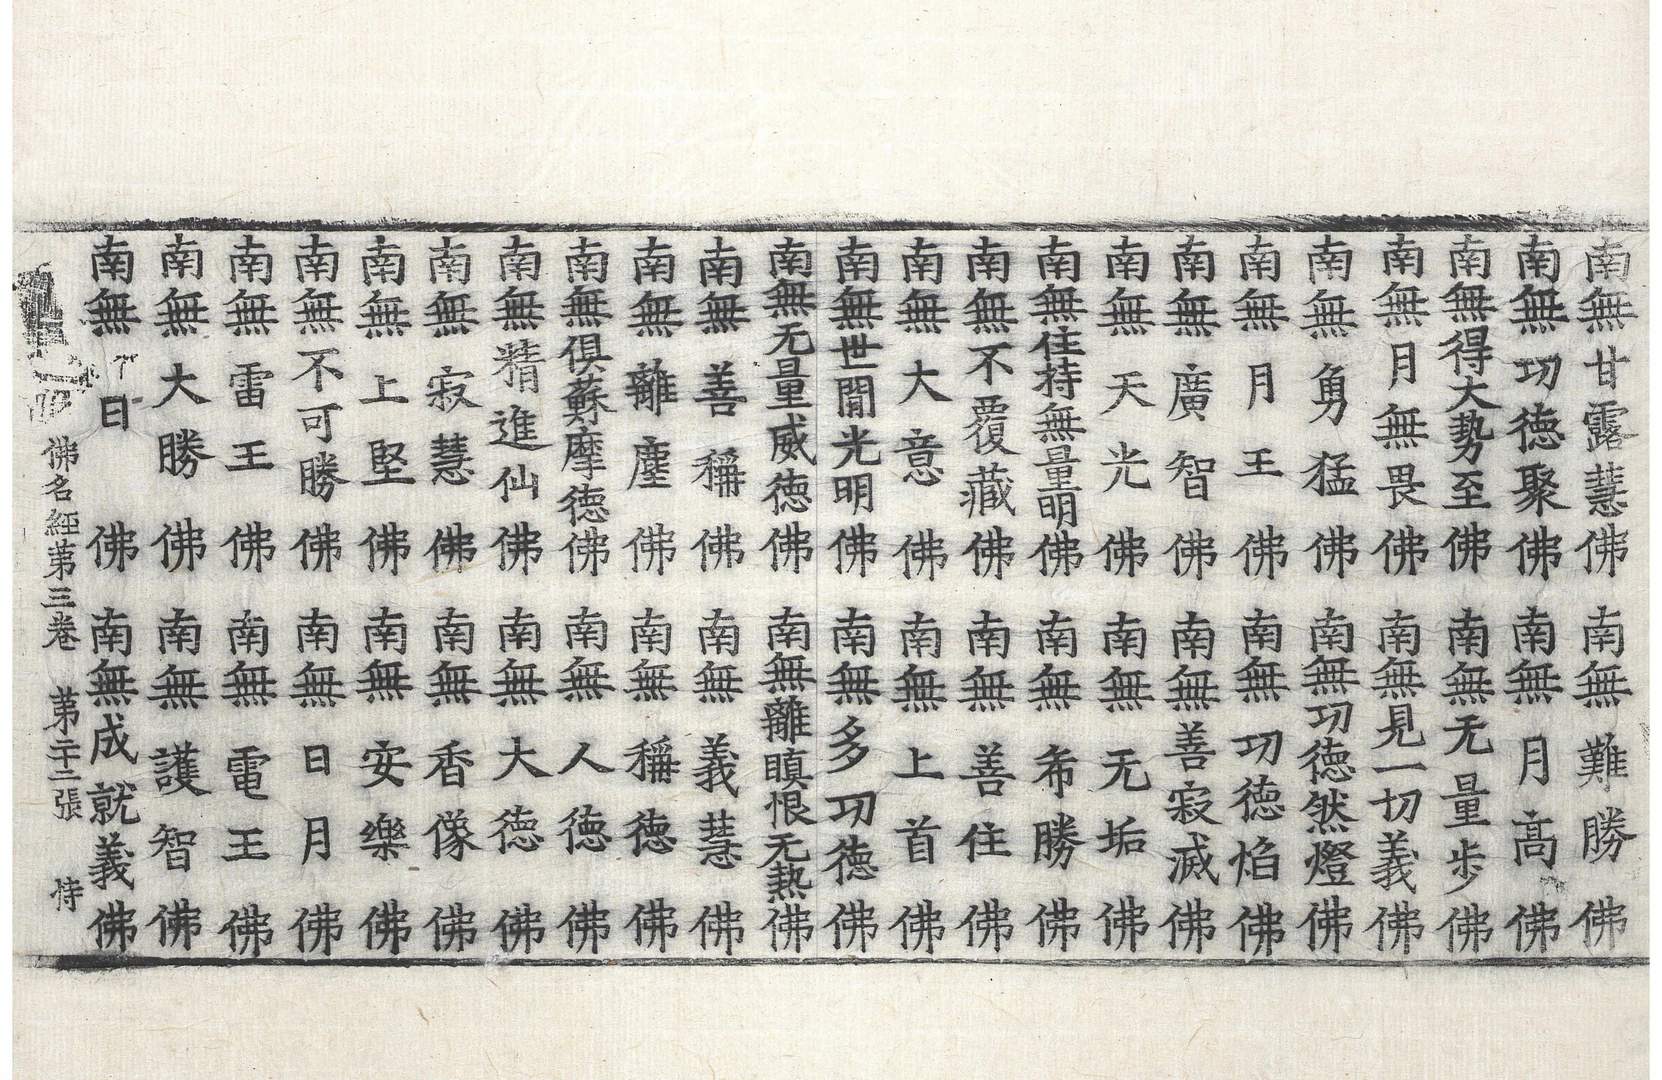 南無甘露慧佛 南無難勝佛
南無㓛德聚佛 南無月高佛
南無得大勢至佛 南無无量步佛
南無月無畏佛 南無見一切義佛
南無勇猛佛 南無㓛德然燈佛
南無月王佛 南無㓛德焰佛
南無廣智佛 南無善寂滅佛
南無天光佛 南無无垢佛
南無住持無量明佛 南無希勝佛
南無不覆藏佛 南無善住佛
南無大意佛 南無上首佛
南無世間光明佛 南無多㓛德佛
南無无量威德佛 南無離瞋恨无熱佛
南無善稱佛 南無義慧佛
南無離塵佛 南無稱德佛
南無俱蘇摩德佛 南無人德佛
南無精進仙佛 南無大德佛
南無寂慧佛 南無香像佛
南無上堅佛 南無安樂佛
南無不可勝佛 南無日月佛
南無雷王佛 南無電王佛
南無大勝佛 南無護智佛
南無日佛 南無成就義佛
佛名經第三卷 第二十二張 恃